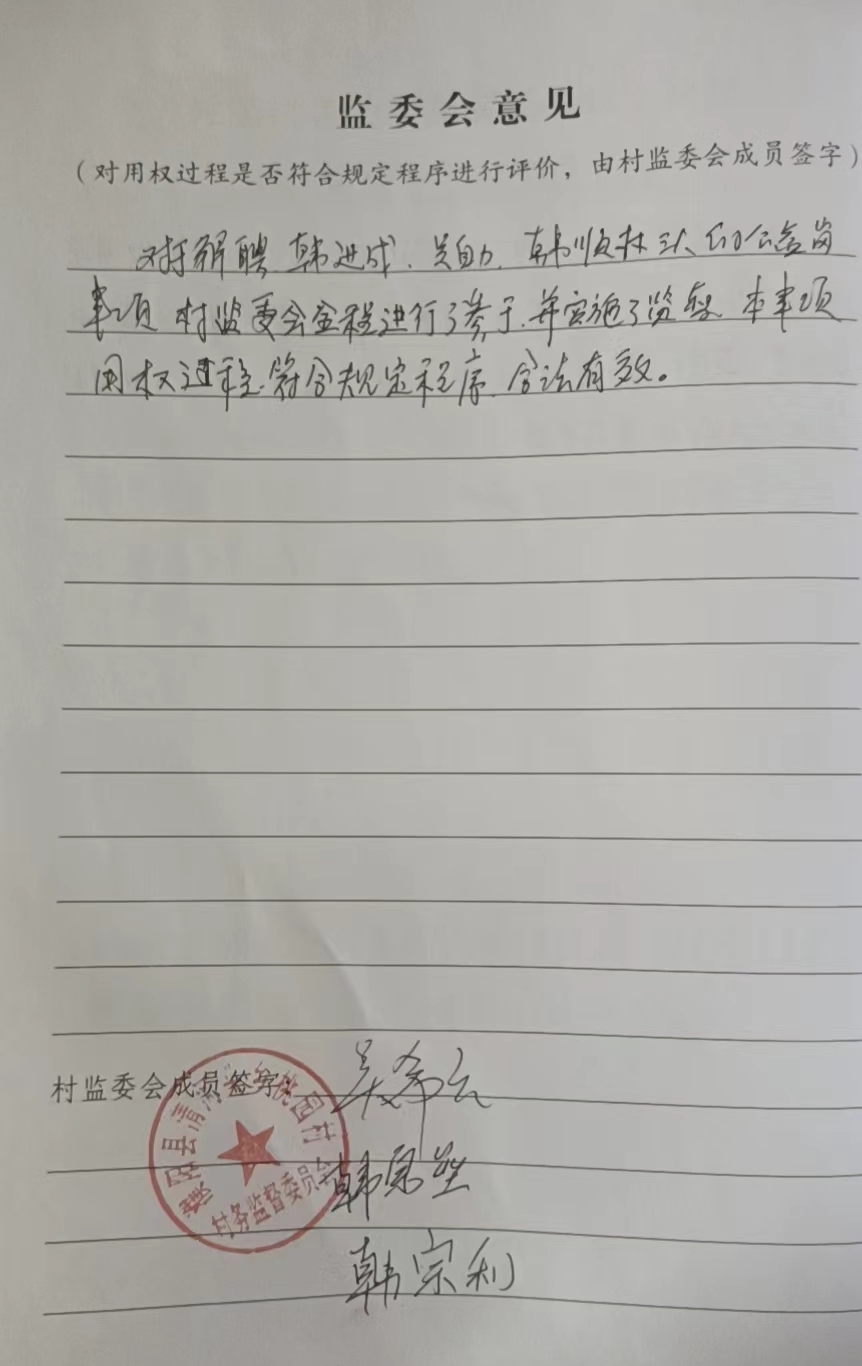 监委会意见
（对用权过程是否符合规定程序进行评价，由村监委会成员签字）
对于解聘韩进成、吴自力、韩顺林三人的公益岗
事项 村监委会全程进行了参于，并实施了监督，本事项
用权过程，符合规定程序，合法有效。
村监委会成员签字：
吴希云
韩宗利
县清 乡 园村
村务监督委员会